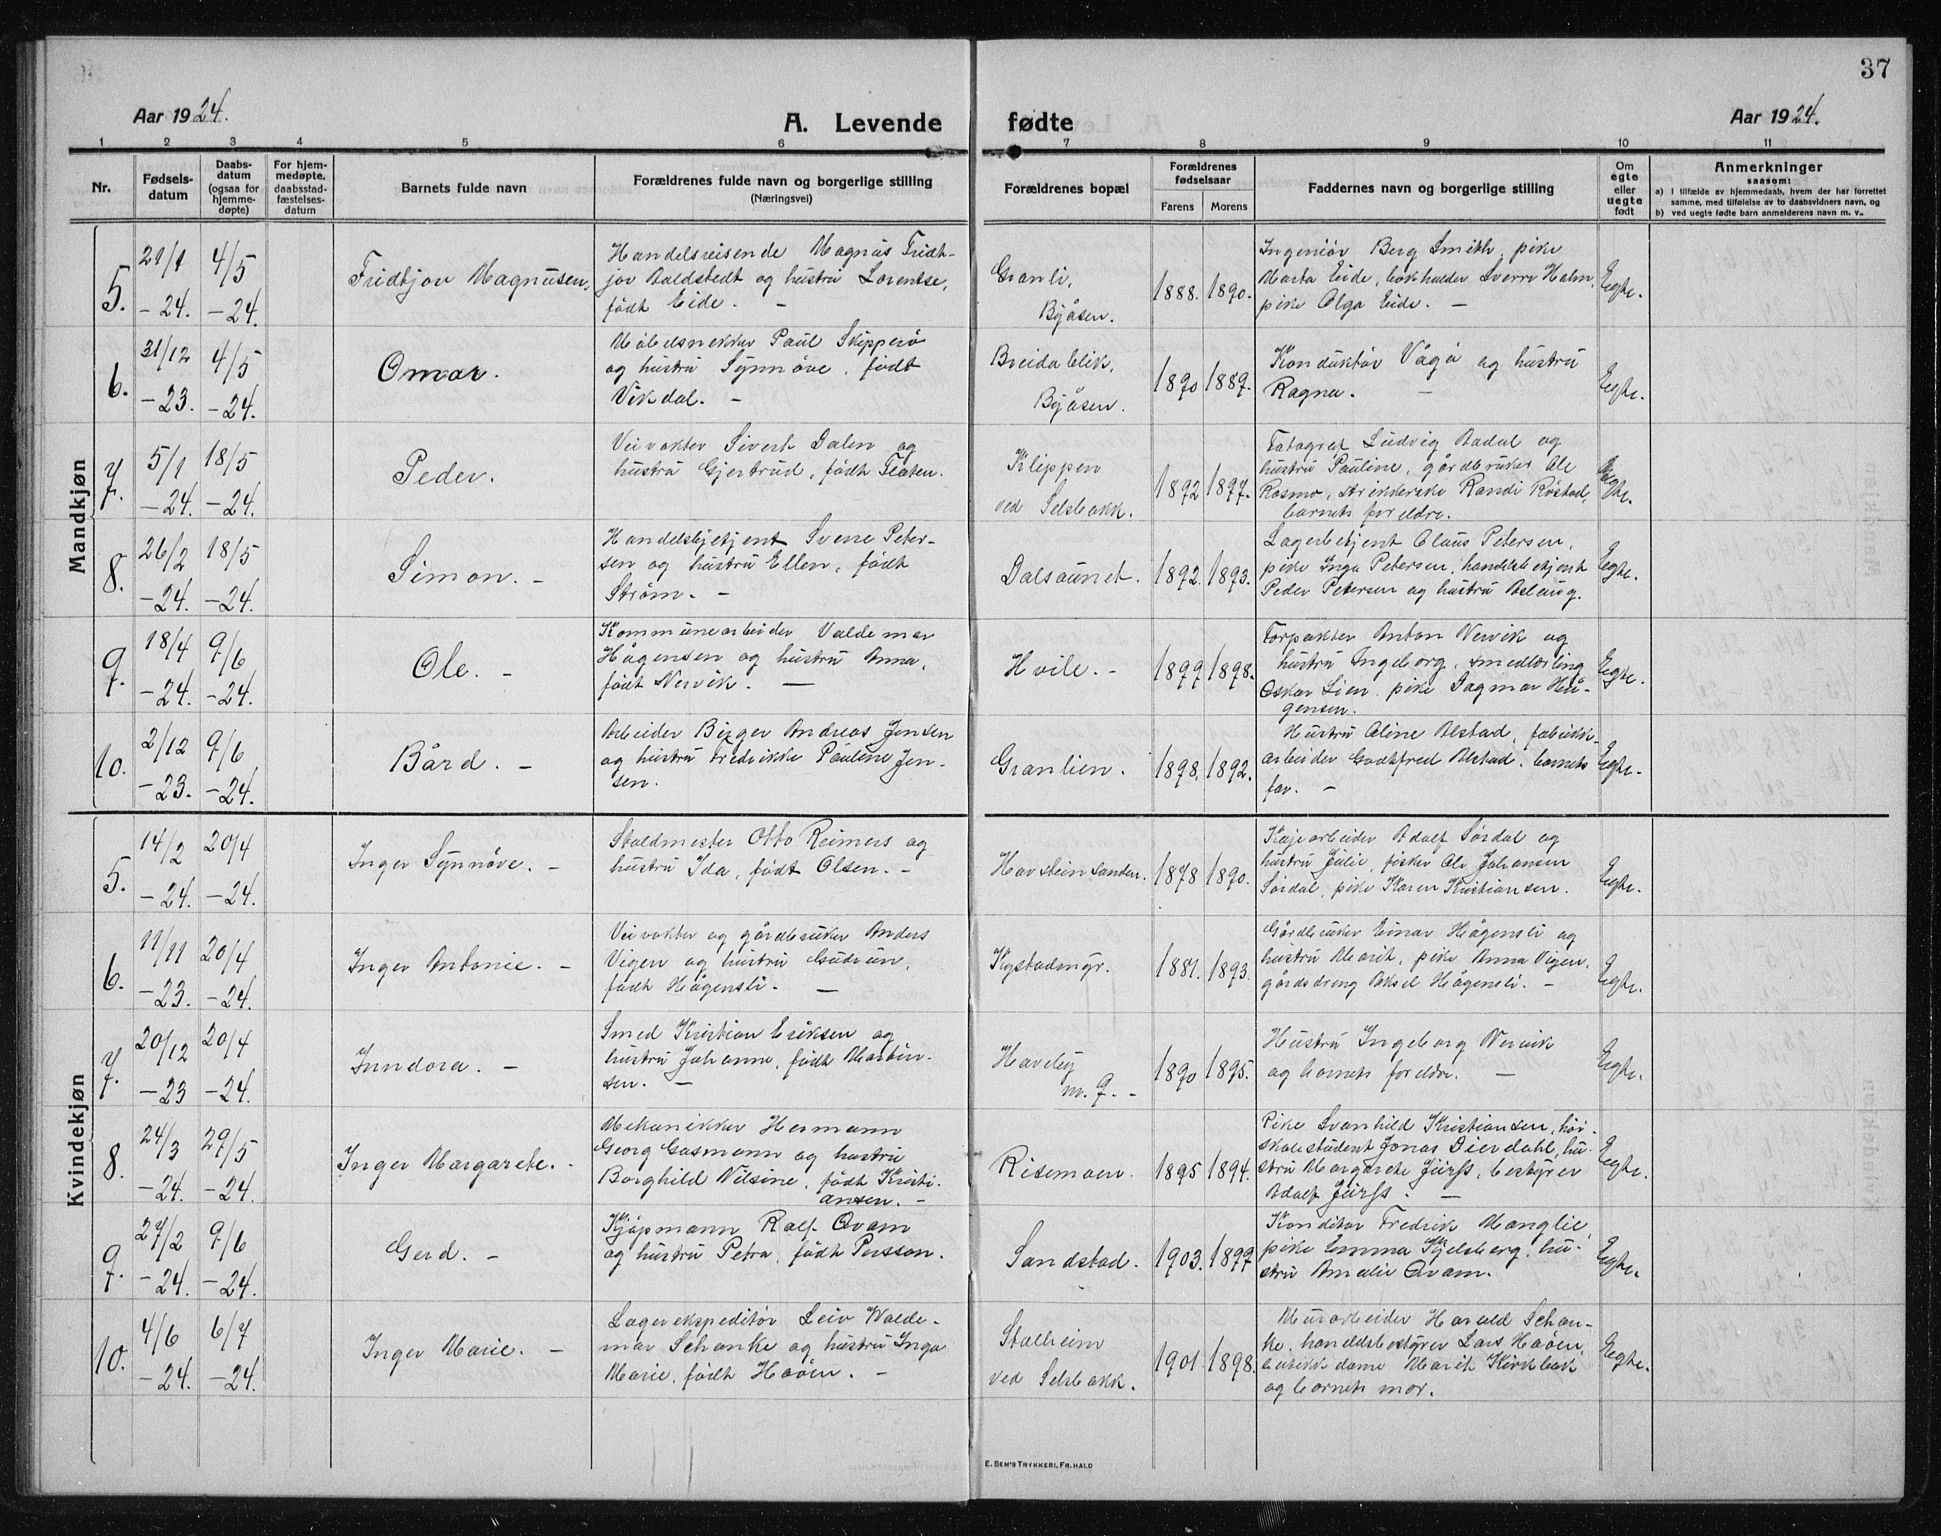 37
Aar 1924.
A. Levende fødte
Aar 1924.
1 2 3 4 5 6 7 8 9 10 11
Nr.
Fødsels-
datum
Daabs-
datum
(ogsaa for
hjemme-
døpte)
For hjem-
medøpte,
daabsstad-
fæstelses-
datum
Barnets fulde navn
Forældrenes fulde navn og borgerlige stilling
(Næringsvei)
Forældrenes bopæl
Forældrenes
fødselsaar
Farens Morens
Faddernes navn og borgerlige stilling
Om
egte
eller
uegte
født
Anmerkninger
saasom:
a) I tilfælde av hjemmedaab, hvem der har forrettet
samme, med tilføielse av to daabsvidners navn, og
b) ved uegte fødte barn anmelderens navn m. v.
Mandkjøn
5.
21/1
-24.
4/5
-24.
Fridtjov Magnusen.
Handelsreisende Magnus Fridt-
jov Baldstedt og hustru Lorentse,
født Eide. -
Granli,
Byåsen.
1888. 1890.
Ingeniør Berg Smith, pike
Marta Eide, bokholder Sverre Holm,
pike Olga Eide. -
Egte.
6.
31/12
-23.
4/5
-24.
Omar.
Møbelsnekker Paul Skipperø
og hustru Synnøve, født
Vikdal. -
Breidablik,
Byåsen.
1890 1889.
Konduktør Vågø og hustru
Ragna. -
Egte.
7.
5/1
-24.
18/5
-24.
Peder.
Veivokter Sivert Dalen og
hustru Gjertrud, født Flaten.
Klippen
ved Selsbakk.
1892 1897.
Fotograf Ludvig Aadal og
hustru Pauline, gårdbruker Ole
Rosmo, strikkerske Randi Røstad,
barnets foreldre.
Egte.
8.
26/2
-24.
18/5
-24.
Simon. -
Handelsbetjent Sverre Peter-
sen og hustru Ellen, født
Strøm. -
Dalsaunet.
1892. 1893.
Lagerbetjent Claus Petersen,
pike Inga Petersen, handelsbetjent
Peder Petersen og hustru Aslaug.
Egte.
9.
18/4
-24.
9/6
-24.
Ole. -
Kommunearbeider Valdemar
Hågensen og hustru Anna,
født Nervik. -
Hvile. -
1899 1898.
Forpakter Anton Nervik og
hustru Ingeborg, smedlærling
Oskar Lien, pike Dagmar Hå-
gensen.
Egte.
10.
2/12
-23.
9/6
-24.
Bård. -
Arbeider Birger Andreas Jensen
og hustru Fredrikke Pauline Jen-
sen.
Granlien.
1898. 1892.
Hustru Aline Alstad, fabrikk-
arbeider Godtfred Alstad, barnets
far. -
Egte.
Kvindekjøn
5.
14/2
-24.
20/4
-24.
Inger Synnøve. -
Staldmester Otto Reimers og
hustru Ida, født Olsen. -
Havsteinsanden.
1878 1890.
Kaiearbeider Adolf Sørdal og
hustru Julie, fisker Ole Johansen
Sørdal, pike Karen Kristiansen.
Egte.
6.
11/11
-23.
20/4
-24.
Inger Antonie. -
Veivokter og gårdbruker Anders
Vigen og hustru Gudrun,
født Hågensli. -
Kystadmyr.
1881. 1893.
Gårdbruker Einar Hågensli og
hustru Marit, pike Anna Vigen,
gårdsdreng Aksel Hågensli. -
Egte.
7.
20/12
-23
20/4
-24.
Inndora. -
Smed Kristian Eriksen og
hustru Johanne, født Martin-
sen. -
Haveby
nr. 9. -
1890 1895.
Hustru Ingeborg Nervik
og barnets foreldre. -
Egte.
8.
24/3
-24.
29/5
-24.
Inger Margarete. -
Mekanikker Hermann
Georg Gasmann og hustru
Borghild Nilsine, født Kristi-
ansen. -
Risemoen.
1895 1894.
Pike Svanhild Kristiansen, høi-
skolestudent Jonas Dierdahl, hu-
stru Margarete Jürss, bestyrer
Adolf Jürss. -
Egte.
9.
27/2
-24.
9/6
-24.
Gerd. -
Kjøpmann Ralf Qvam
og hustru Petra, født Persson.
Sandstad.
1903. 1899
Konditor Fredrik Manglie
pike Emma Kjelsberg, hu-
stru Amalie Qvam.
Egte.
10.
4/6
-24.
6/7
-24.
Inger Marie. -
Lagerekspeditør Leiv Walde-
mar Schanke og hustru Inga
Marie, født Haøen. -
Stalheim
ved Selsbakk.
1901. 1898.
Murarbeider Harald Schan-
ke, handelsbestyrer Lars Haøen,
butikkdame Marit Kirkbak
og barnets mor.
Egte.
E. SEM'S TRYKKERI, FR.HALD